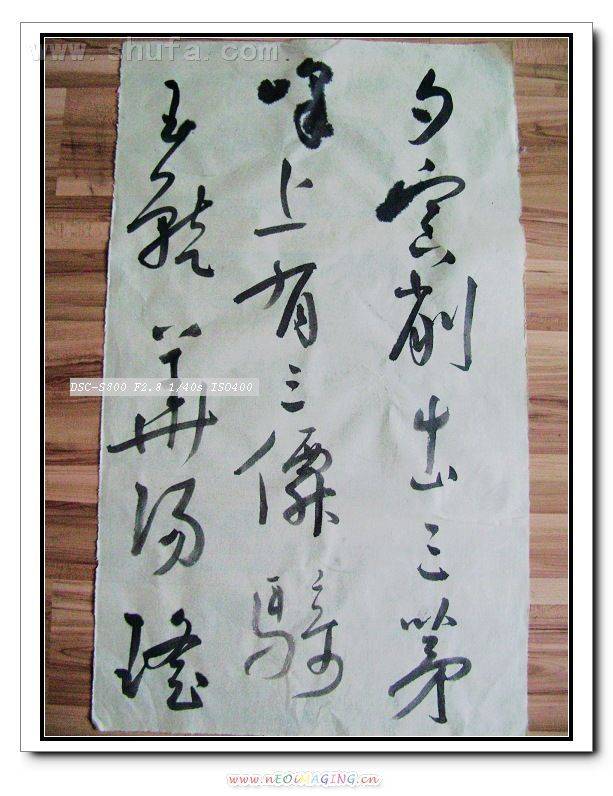 www.shufa.com
削出三茅
峰上有三僊騎
玉龍華陽瑤
DSC-S800 F2.8 1/40s ISO400
www.nEOiMAGING.cn